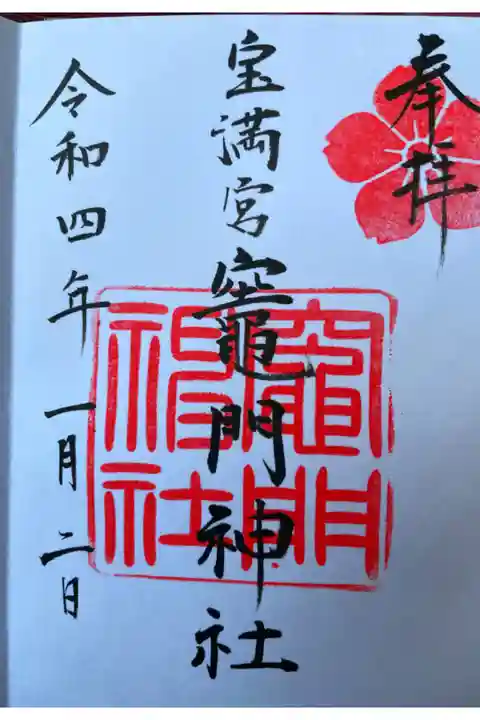 奉拝
宝満宮竈門神社
竈門神社
令和四年一月二日